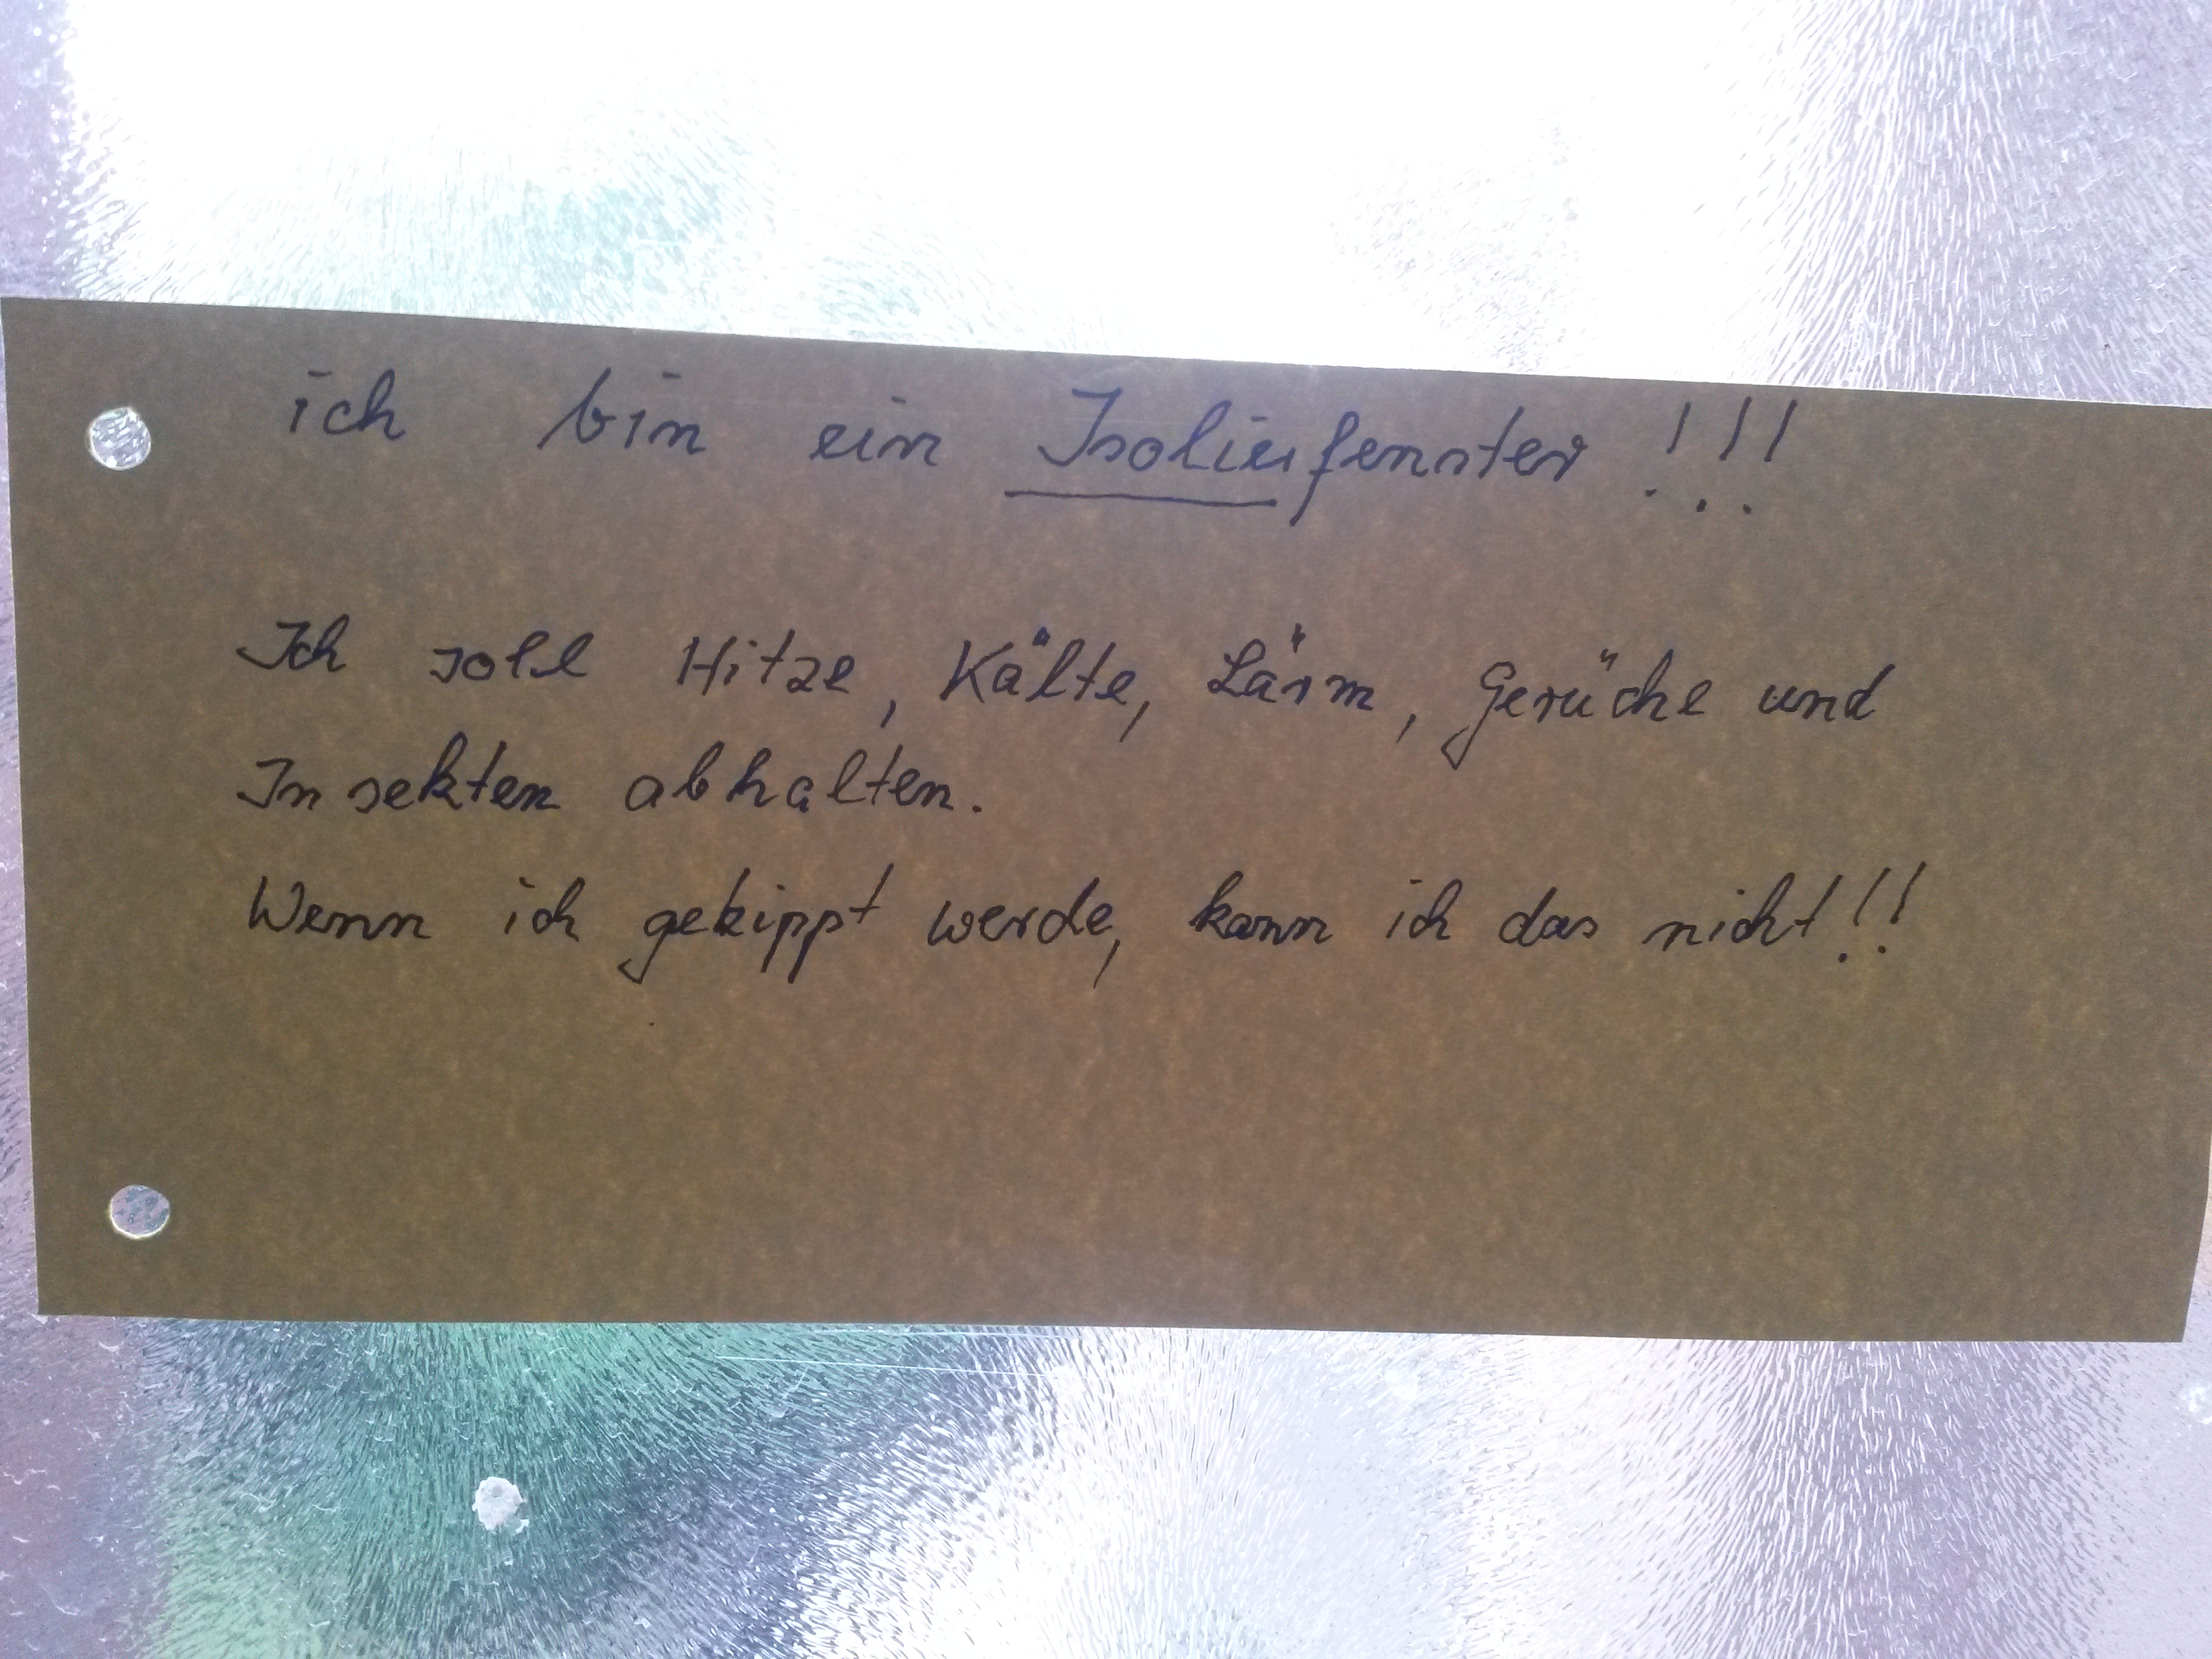 ich bin ein Isolierfenster !!!
Ich soll Hitze, Kälte, Lärm, Gerüche und
Insekten abhalten.
Wenn ich gekippt werde, kann ich das nicht!!